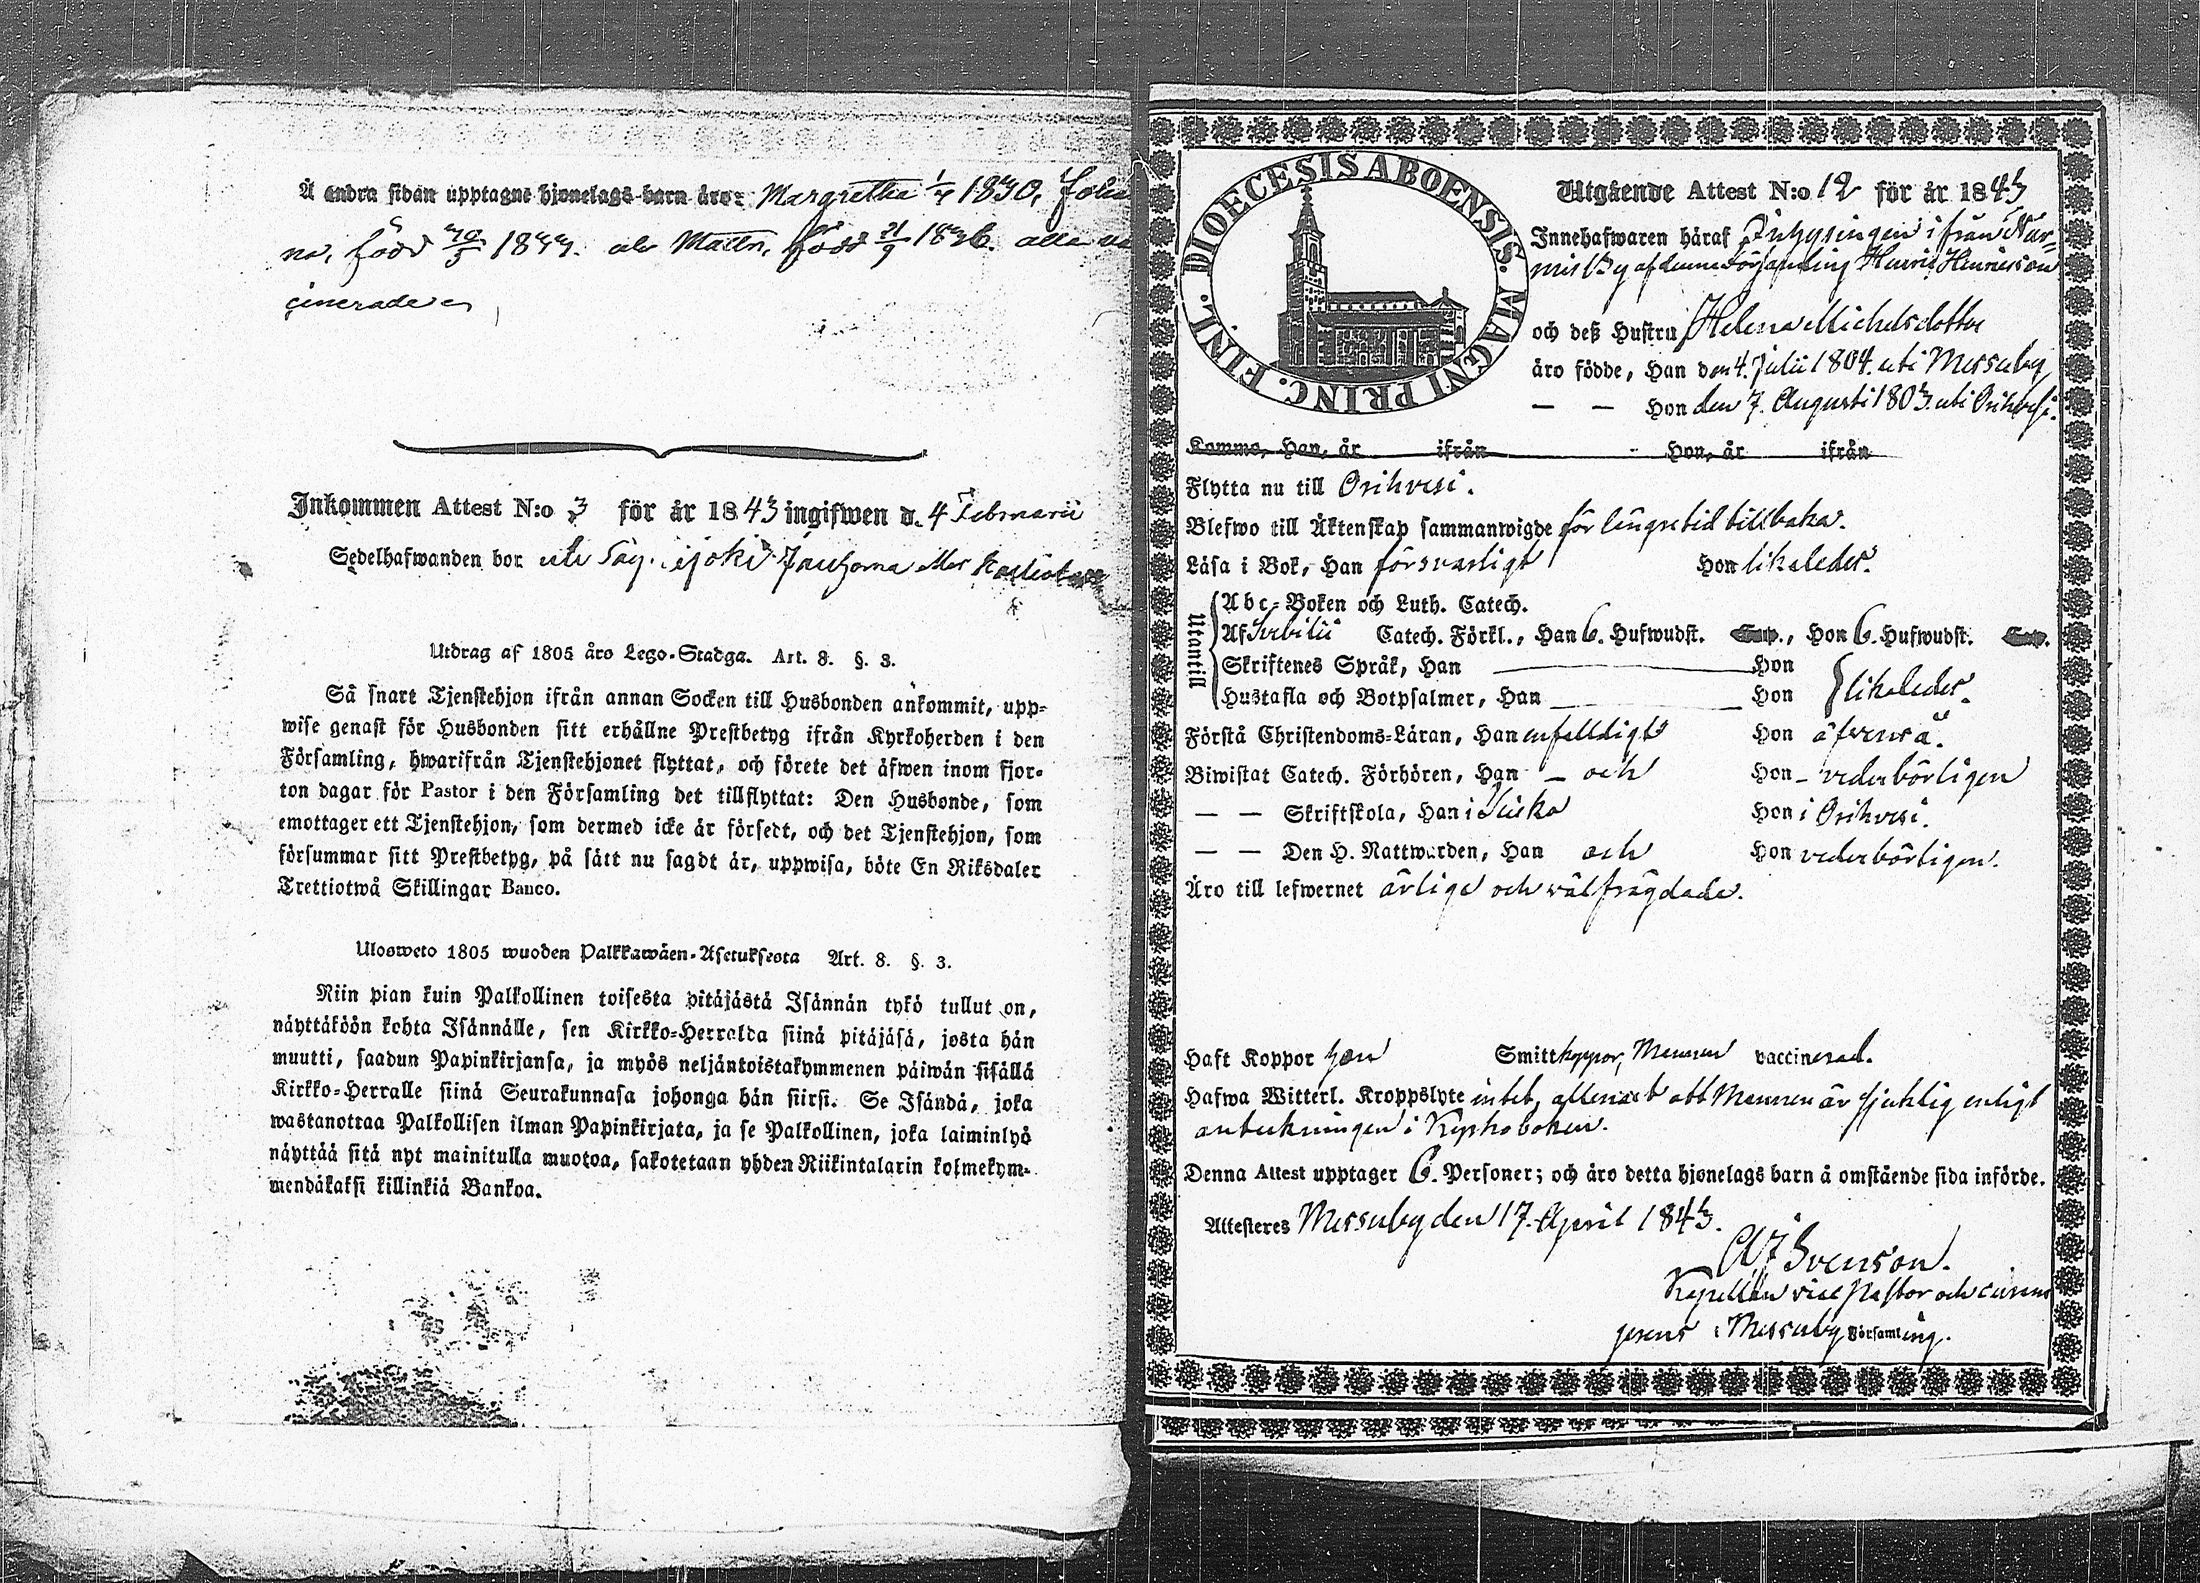 Å andra sidan upptagne hjonelags barn äro: Margretha 1/4 1830,
na, född 1833. född 21/9 1836. alla
cinerade
Inkommen Attest N:o 3 för år 1843 ingifwen d. 4 Februarii
Sedelhafwanden bor eller
Utdrag af 1805 års Lego-Stadga. Art. 8. §. 3.
Så snart Tjenstehjon ifrån annan Socken till Husbonden ankommit, upp-
wise genast för Husbonden sitt erhållne Prestbetyg ifrån Kyrkoherden i den
Församling, hwarifrån Tjenstehjonet flyttat, och förete det äfwen inom fjor-
ton dagar för Pastor i den Församling det tillflyttat: Den Husbonde, som
emottager ett Tjenstehjon, som dermed icke är försedt, och det Tjenstehjon, som
försummar sitt Prestbetyg, på sätt nu sagdt är, uppwisa, böte En Riksdaler
Trettiotwå Skillingar Banco.
Ulosweto 1805 wuoden Palkkawäen-Asetuksesta Art. 8. §. 3.
Niin pian kuin Palkollinen toisesta pitäjästä Isännän tykö tullut on,
näyttäköön kohta Isännälle, sen Kirkko-Herralda siinä pitäjäsä, josta hän
muutti, saadun Papinkirjansa, ja myös neljäntoistakymmenen päiwän sisällä
Kirkko-Herralle siinä Seurakunnasa johonga hän siirsi. Se Isändä, joka
wastanottaa Palkollisen ilman Papinkirjata, ja se Palkollinen, joka laiminlyö
näyttää sitä nyt mainitulla muotoa, sakotetaan yhden Riikintalarin kolmekym-
mendäkaksi killinkiä Bankoa.
DIOECESIS ABOENSIS. MAGNI PRINC. FINL.
Utgående Attest N:o 12 för år 1843
Innehafwaren häraf Inhysingen ifrån Nur-
mis By af denna Församling Henric Henricsson
och deß Hustru Helena Michelsdotter
äro födde, Han den 4. Julii 1804. uti Messuby
— — Hon den 7. Augusti 1803. uti Orihvesi.
Komme, Han, år ifrån Hon, år ifrån
Flytta nu till Orihvesi.
Blefwo till Äktenskap sammanwigde för längre tid tillbaka.
Läsa i Bok, Han försvarligt Hon likaledes.
Utantill
Abc-Boken och Luth. Catech.
Af Svebilii Catech. Förkl., Han 6. Hufwudst. Cap., Hon 6. Hufwudst. Cap.
Skriftenes Språk, Han Hon
Hustafla och Botpsalmer, Han Hon likaledes.
Förstå Christendoms-Läran, Han enfaldigt Hon äfvenså.
Biwistat Catech. Förhören, Han — och Hon — vederbörligen
— — Skriftskola, Han i Hon i Orihvesi.
— — Den H. Nattwarden, Han och Hon vederbörligen.
Äro till lefwernet ärliga och välfrägdade.
Haft Koppor hon Smittkoppor, Mannen vaccinerad.
Hafwa Witterl. Kroppslyte intet, allenast att Mannen är sjuklig enligt
anteckningen i Kyrkoboken.
Denna Attest upptager 6. Personer; och äro detta hjonelags barn å omstående sida införde.
Attesteres Messuby den 17. April 1843.
Svenson.
Kapellan vice Pastor och curam
gerens i Messuby Församling.